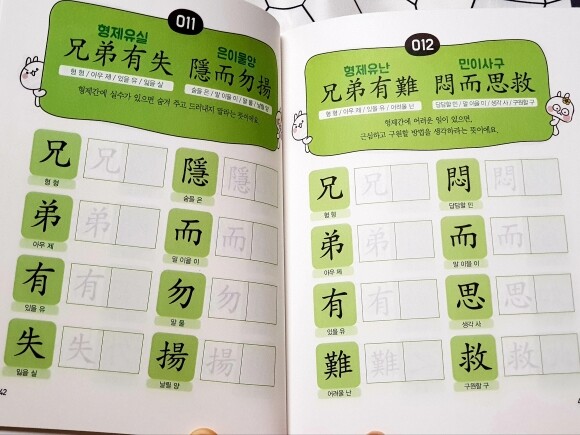 011
형제유실 은이물양
兄弟有失 隱而勿揚
형 형 / 아우 제 / 있을 유 / 잃을 실 숨을 은 / 말 이을 이 / 말 물 / 날릴 양
형제간에 실수가 있으면 숨겨 주고 드러내지 말라는 뜻이에요.
兄 兄 隱 隱
형 형 숨을 은
弟 弟 而 而
아우 제 말 이을 이
有 有 勿 勿
있을 유 말 물
失 失 揚 揚
잃을 실 날릴 양
42
012
형제유난 민이사구
兄弟有難 悶而思救
형 형 / 아우 제 / 있을 유 / 어려울 난 답답할 민 / 말 이을 이 / 생각 사 / 구원할 구
형제간에 어려운 일이 있으면,
근심하고 구원할 방법을 생각하라는 뜻이에요.
兄 兄 悶 悶
형 형 답답할 민
弟 弟 而 而
아우 제 말 이을 이
有 有 思 思
있을 유 생각 사
難 難 救 救
어려울 난 구원할 구